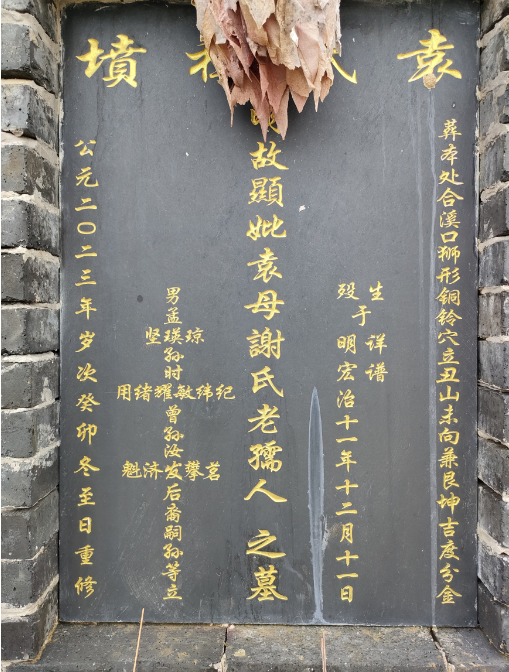 袁氏墳
葬本处合溪口狮形铜铃穴立丑山未向兼艮坤吉度分金
生于详谱
殁于明宏治十一年十二月十一日
故顯妣袁母謝氏老孺人之墓
男孟
琼瑛坚
孙时
纪纬敏耀绪用
曾孙汝
茗攀发济魁
后裔嗣孙等立
公元二〇二三年岁次癸卯冬至日重修